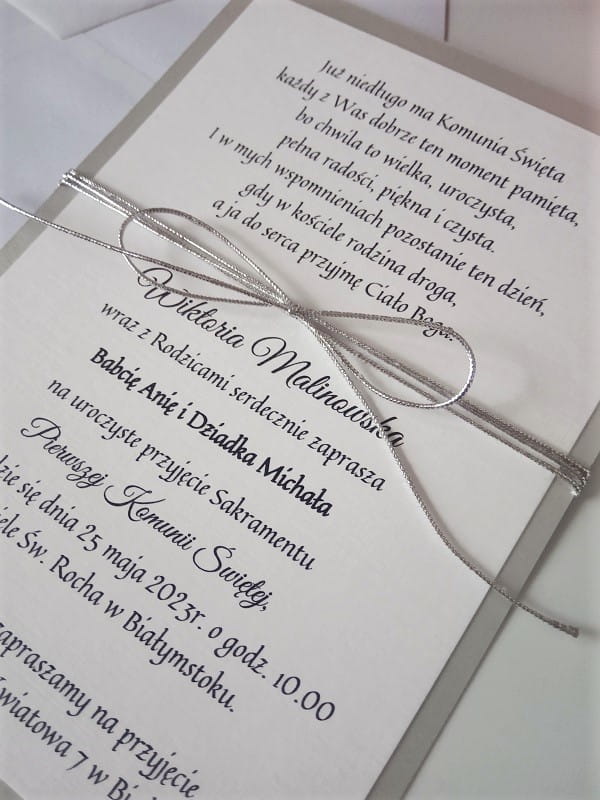 Już niedługo ma Komunia Święta
każdy z Was dobrze ten moment pamięta,
bo chwila to wielka, uroczysta,
pełna radości, piękna i czysta.
I w mych wspomnieniach pozostanie ten dzień,
gdy w kościele rodzina droga,
a ja do serca przyjmę Ciało Boga.
Wiktoria Malinowska
wraz z Rodzicami serdecznie zaprasza
Babcię Anię i Dziadka Michała
na uroczyste przyjęcie Sakramentu
Pierwszej Komunii Świętej,
dzie się dnia 25 maja 2023r. o godz. 10.00
ele Św. Rocha w Białymstoku.
zapraszamy na przyjęcie
wiatowa 7 w Bi